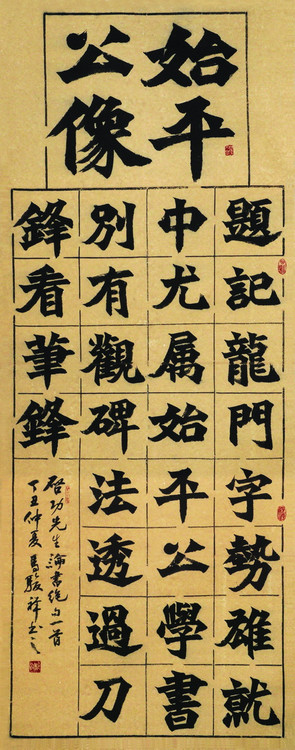 始平
公像
題記龍門字勢雄就
中尤属始平公學書
別有觀碑法透過刀
鋒看筆鋒
启功先生論書絕句一首
丁丑仲夏馬駿祥書